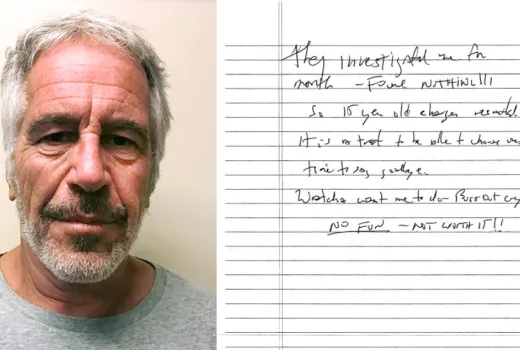 They investigated me for
month - Found NOTHING!!!
So 15 year old charges
It is a treat to be able to choose
time to say goodbye.
Watcha want me to do - Burst out
NO FUN - NOT WORTH IT!!